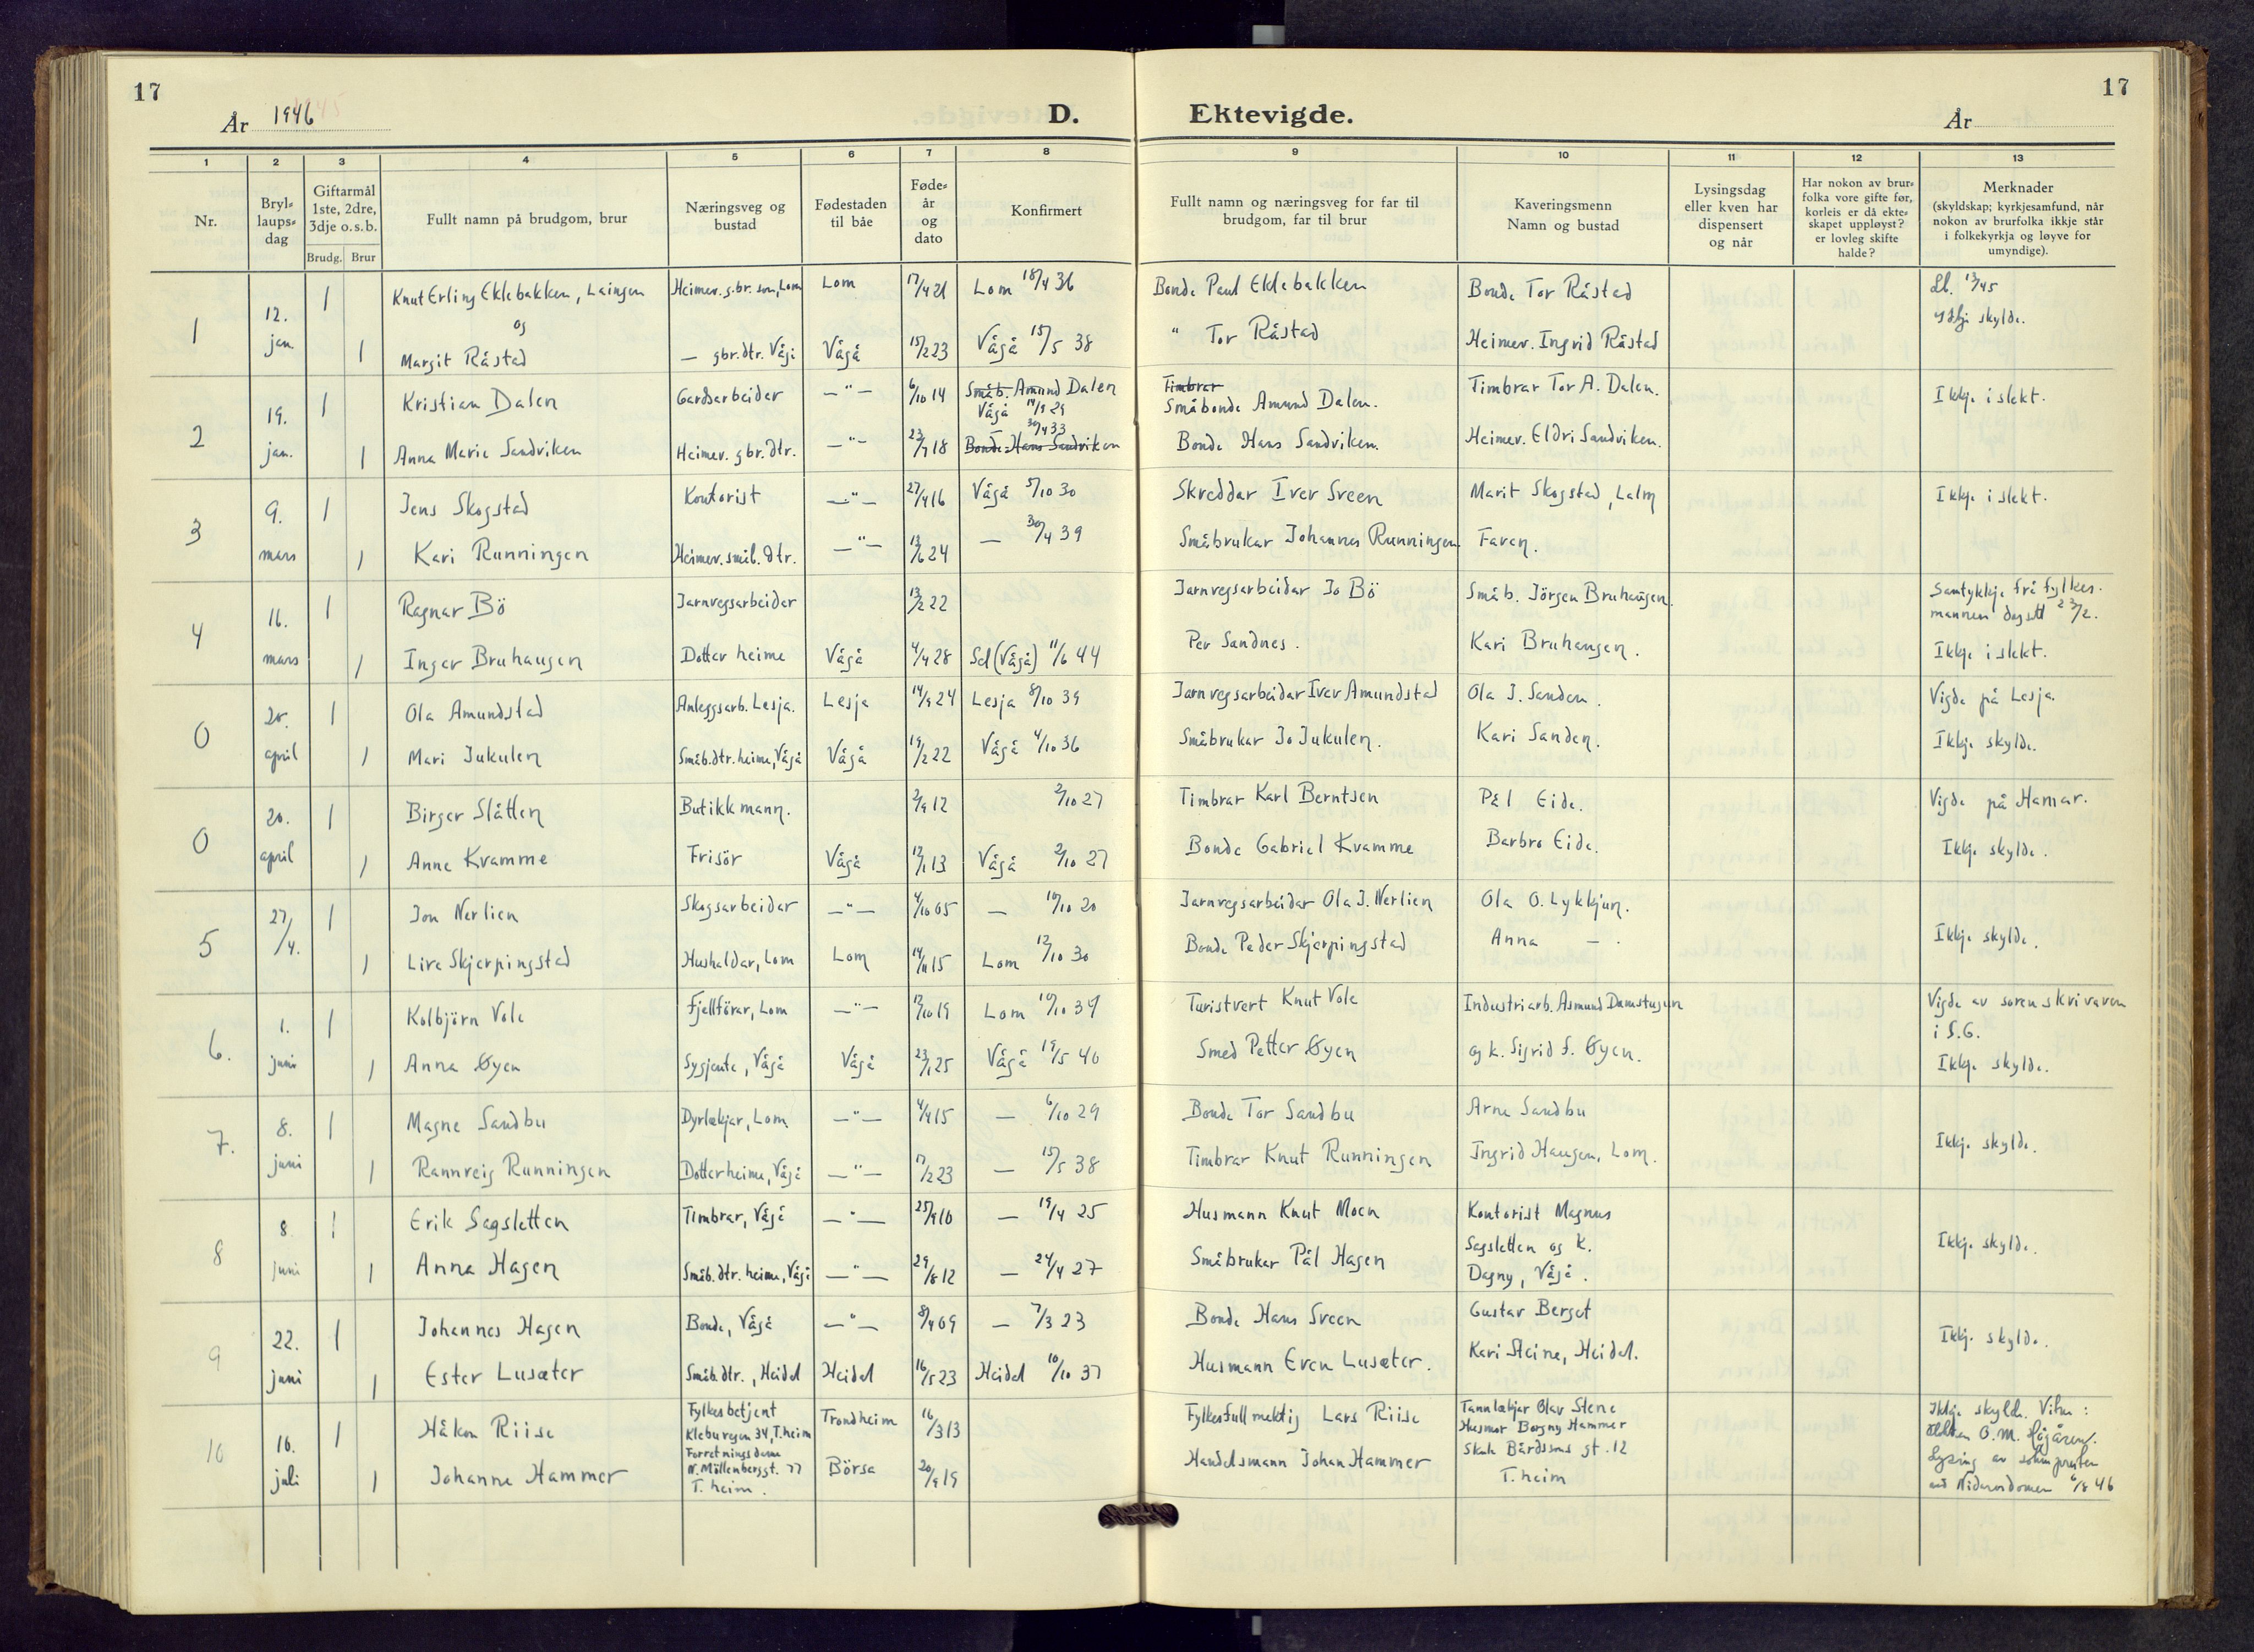 17
17
År 1946
D. Ektevigde.
År
1 2 3 4 5 6 7 8 9 10 11 12 13
Nr.
Bryl-
laups-
dag
Giftarmål
1ste, 2dre,
3dje o.s.b.
Brudg. Brur
Fullt namn på brudgom, brur
Næringsveg og
bustad
Fødestaden
til båe
Føde-
år
og
dato
Konfirmert
Fullt namn og næringsveg for far til
brudgom, far til brur
Kaveringsmenn
Namn og bustad
Lysingsdag
eller kven har
dispensert
og når
Har nokon av brur-
folka vore gifte før,
korleis er då ekte-
skapet uppløyst?
er lovleg skifte
halde?
Merknader
(skyldskap; kyrkjesamfund, når
nokon av brurfolka ikkje står
i folkekyrkja og løyve for
umyndige).
1 12. jan. 1 Knut Erling Eklebakken, Laingen Heimev. g.br. son, Lom Lom 17/4 21 Lom 18/4 36 Bonde Paul Eklebakken Bonde Tor Råstad 13/45
og
Ikkje skylde.
1 Margit Råstad — gbr.dtr. Vågå Vågå 15/2 23 Vågå 15/5 38 " Tor Råstad Heimev. Ingrid Råstad
2 19. jan. 1 Kristian Dalen Gardsarbeidar —"— 6/10 14 Småb. Amund Dalen Timbrar Timbrar Tor A. Dalen. Ikkje i slekt.
Vågå 14/9 29 Småbonde Amund Dalen.
30/4 33
1 Anna Marie Sandviken Heimev. gbr. dtr. —"— 23/7 18 Bonde Hans Sandviken Bonde Hans Sandviken. Heimev. Eldri Sandviken.
3 9. mars 1 Jens Skogstad Kontorist —"— 27/4 16 Vågå 5/10 30 Skreddar Iver Sveen Marit Skogstad, Lalm Ikkje i slekt.
1 Kari Runningen Heimev. småb. dtr. —"— 13/6 24 — 30/4 39 Småbrukar Johannes Runningen Faren.
4 16. mars 1 Ragnar Bö Jarnvegsarbeidar 13/2 22 Jarnvegsarbeidar Jo Bö Småb. Jörgen Bruhaugen. Samtykkje frå fylkes-
mannen dagsett 23/2.
1 Inger Bruhaugen Dotter heime Vågå 4/4 28 Sel (Vågå) 11/6 44 Per Sandnes. Kari Bruhaugen. Ikkje i slekt.
0 20. april 1 Ola Amundstad Anleggsarb. Lesja. Lesja 14/9 24 Lesja 8/10 39 Jarnvegsarbeidar Iver Amundstad Ola J. Sanden. Vigde på Lesja.
1 Mari Jukulen Småb.dtr. heime, Vågå Vågå 19/2 22 Vågå 4/10 36 Småbrukar Jo Jukulen. Kari Sanden. Ikkje skylde.
0 20. april 1 Birger Slåtten Butikkmann. 2/9 12 2/10 27 Timbrar Karl Berntsen Pål Eide. Vigde på Hamar.
1 Anne Kvamme Frisör Vågå 12/1 13 Vågå 2/10 27 Bonde Gabriel Kvamme Barbro Eide. Ikkje skylde.
5 27/4. 1 Jon Nerlien Skogsarbeidar —"— 4/10 05 — 10/10 20 Jarnvegsarbeidar Ola J. Nerlien Ola O. Lykkjun. Ikkje skylde.
1 Live Skjerpingstad Hushaldar, Lom Lom 14/11 15 Lom 12/10 30 Bonde Peder Skjerpingstad Anna — .
6. 1. juni 1 Kolbjörn Vole Fjellförar, Lom —"— 17/10 19 Lom 10/10 34 Turistvert Knut Vole Industriarb. Asmund Damstugun Vigde av sorenskrivaren
i S.G.
1 Anna Øyen Sygjente, Vågå Vågå 23/1 25 Vågå 19/5 40 Smed Petter Øyen og k. Sigrid f. Øyen. Ikkje skylde.
7. 8. juni 1 Magne Sandbu Dyrlækjar, Lom —"— 4/4 15 — 6/10 29 Bonde Tor Sandbu Arne Sandbu Ikkje skylde.
1 Rannveig Runningen Dotter heime, Vågå —"— 17/2 23 — 15/5 38 Timbrar Knut Runningen Ingrid Haugen, Lom.
8 8. juni 1 Erik Sagsletten Timbrar, Vågå —"— 25/9 10 — 19/4 25 Husmann Knut Moen Kontorist Magnus Ikkje skylde.
Sagsletten og k.
1 Anna Hagen Småb. dtr. heime, Vågå —"— 29/8 12 — 24/4 27 Småbrukar Pål Hagen Dagny, Vågå.
9 22. juni 1 Johannes Hagen Bonde, Vågå —"— 8/4 09 — 7/3 23 Bonde Hans Sveen Gustav Berget Ikkje skylde.
1 Ester Lusæter Småb.dtr., Heidal Heidal 16/5 23 Heidal 10/10 37 Husmann Even Lusæter. Kari Steine, Heidal.
10 16. juli 1 Håkon Riise Fylkesbetjent Trondheim 16/3 13 Fylkesfullmektig Lars Riise Tannlækjar Olav Stene Ikkje skylde. Vitne:
Klebuvegen 34, T.heim Husmor Borgny Hammer O.M.
1 Johanne Hammer Forretningsdame Börsa 20/9 19 Handelsmann Johan Hammer Skule Bårdssons gt. 12 Lysing av
N. Möllenbergsgt. 77 T.heim ved Nidarosdomen 6/8 46
T.heim.